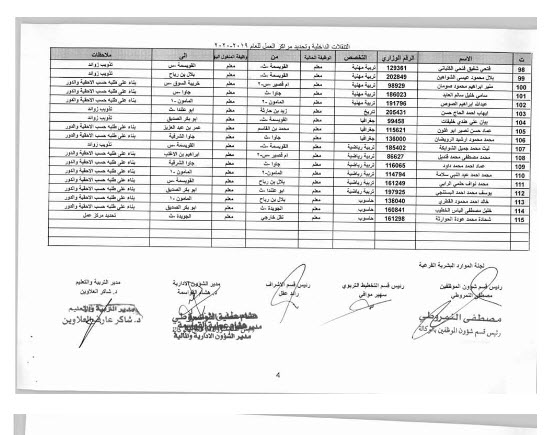 التنقلات الداخلية وتحديد مراكز العمل للعام ٢٠١٩-٢٠٢٠
ت الاسم الرقم الوزاري التخصص الوظيفة الحالية من الوظيفة المنقول اليها الى ملاحظات
98 فتحي شفيق فتحي الكيلاني 129361 تربية مهنية معلم القويسمة -ث- معلم القويسمة -س تذويب زوائد
99 بلال محمود عيسى الشواهين 202849 تربية مهنية معلم معلم بلال بن رباح تذويب زوائد
100 منير ابراهيم محمود صومان 98929 تربية مهنية معلم ام قصير س-٢ معلم خريبة السوق -س بناء على طلبه حسب الاحقية والدور
101 سامي خليل سالم العايد 186023 تربية مهنية معلم جاوا -ث معلم جاوا -س بناء على طلبه حسب الاحقية والدور
102 عبدالله ابراهيم الصوص 191796 تربية مهنية معلم المامون -٢ معلم المامون -١ بناء على طلبه حسب الاحقية والدور
103 ايهاب احمد الحاج حسن 205431 تاريخ معلم زيد بن حارثة معلم ابو علندا -ث تذويب زوائد
104 بيان علي هندي خليفات 99458 جغرافيا معلم القويسمة -ث- معلم ابو بكر الصديق بناء على طلبه حسب الاحقية والدور
105 عماد حسن نصير ابو اللون 115621 جغرافيا معلم محمد بن القاسم معلم عمر بن عبد العزيز تذويب زوائد
106 محمود محمد ارشيد الرويضان 138000 جغرافيا معلم جاوا -ث معلم جاوا الشرقية بناء على طلبه حسب الاحقية والدور
107 ليث محمد جميل الشوابكة 185402 تربية رياضية معلم معلم القويسمة -س تذويب زوائد
108 محمد مصطفى محمد قنديل 86627 تربية رياضية معلم ام قصير س-٢ معلم ابراهيم بن الاغلب بناء على طلبه حسب الاحقية والدور
109 عماد احمد محمد داود 116065 تربية رياضية معلم جاوا -ث معلم جاوا الشرقية بناء على طلبه حسب الاحقية والدور
110 محمد احمد عبد النبي سلامة 114794 تربية رياضية معلم المامون -٢ معلم المامون -١ بناء على طلبه حسب الاحقية والدور
111 محمد نواف حلمي الرابي 161249 تربية رياضية معلم بلال بن رباح معلم القويسمة -س بناء على طلبه حسب الاحقية والدور
112 يوسف محمد احمد البستنجي 197925 تربية رياضية معلم ابو علندا -ث معلم ابو بكر الصديق بناء على طلبه حسب الاحقية والدور
113 خالد احمد محمود القطري 138040 حاسوب معلم بلال بن رباح معلم المامون -١ بناء على طلبه حسب الاحقية والدور
114 خليل مصطفى الياس الخطيب 160841 حاسوب معلم الجويدة -ث معلم ابو بكر الصديق بناء على طلبه حسب الاحقية والدور
115 شحادة محمد عودة الحوارثة 161298 حاسوب معلم نقل خارجي معلم الجويدة -ث تحديد مركز عمل
لجنة الموارد البشرية الفرعية
رئيس قسم شؤون الموظفين رئيس قسم التخطيط التربوي رئيس قسم الاشراف مدير الشؤون الادارية مدير التربية والتعليم
مصطفى النمروطي سهير موافي رائد عقل د. هشام القواسمة د. شاكر العلاوين
مصطفى النمروطي
رئيس قسم شؤون الموظفين بالوكالة
مدير الشؤون الادارية والمالية
مدير التربية والتعليم
4